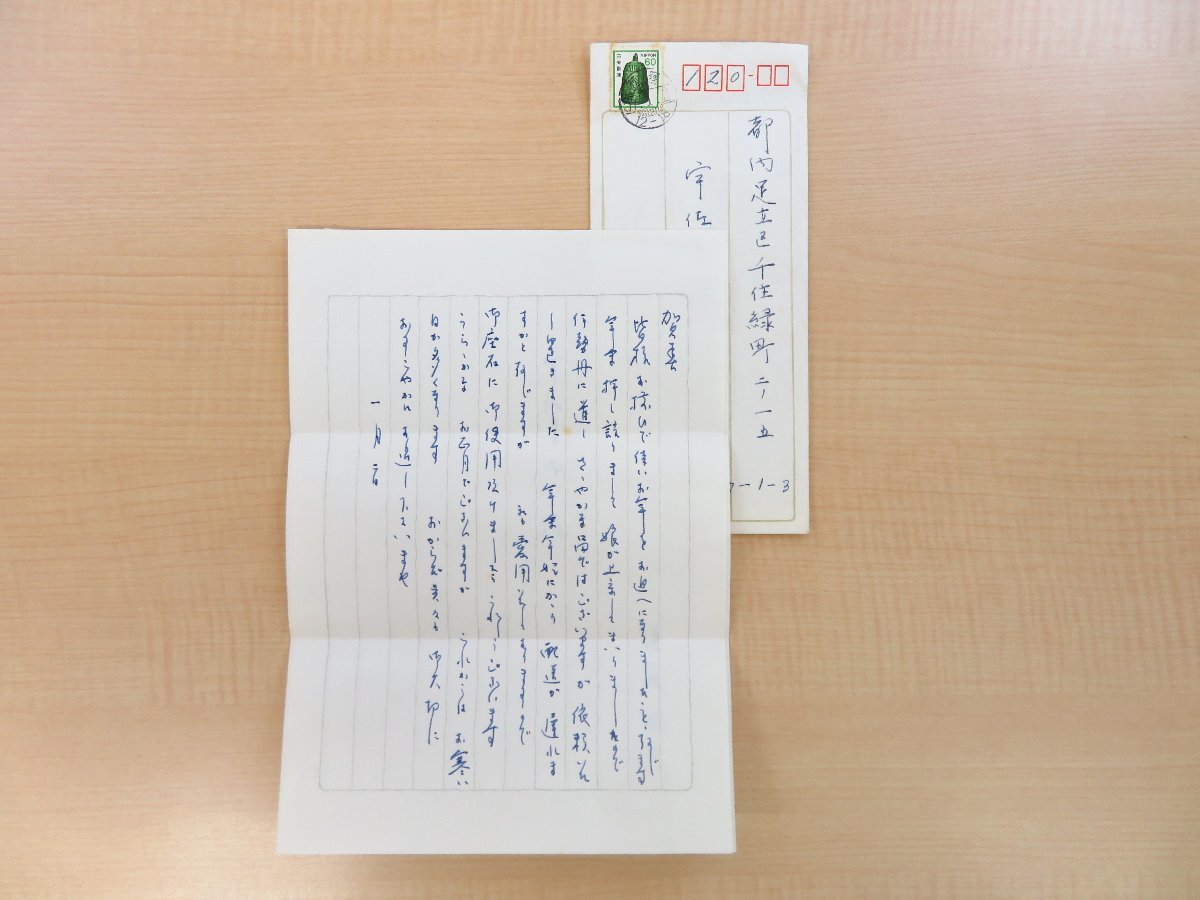 日本郵便
NIPPON
60
120-
都内足立区千住緑町二ノ一五
宇佐
-1-3
賀春
皆様お揃ひで佳いお年をお迎へになりましたことゝ存じます
年末押し詰りまして娘が上京してまいりましたので
伊勢丹に道し さゝやかな品ではございますが依頼いたし
置きました 年末年始にかゝり配送が遅れま
すかと存じますが 私も愛用いたしておりますので
御座右に御使用頂けましたらうれしうございます
うらゝかな お正月でございますが これからはお寒い
日が多くなります おからだ呉々も御大切に
おすこやかにお過し下さいませ
一月二日